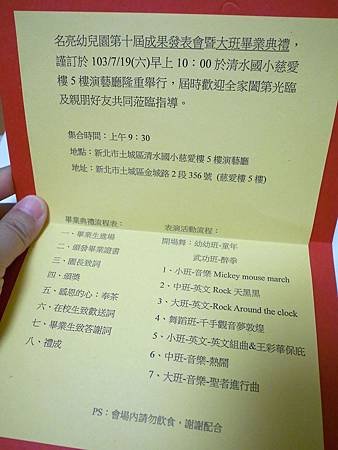 名亮幼兒園第十屆成果發表會暨大班畢業典禮，
謹訂於 103/7/19(六)早上 10：00 於清水國小慈愛
樓 5 樓演藝廳隆重舉行，屆時歡迎全家闔第光臨
及親朋好友共同蒞臨指導。
集合時間：上午 9：30
地點：新北市土城區清水國小慈愛樓 5 樓演藝廳
地址：新北市土城區金城路 2 段 356 號 (慈愛樓 5 樓)
畢業典禮流程表：
一、畢業生進場
二、頒發畢業證書
三、園長致詞
四、頒獎
五、感恩的心：奉茶
六、在校生致歡送詞
七、畢業生致答謝詞
八、禮成
表演活動流程：
開場舞：幼幼班-童年
武功班-醉拳
1、小班-音樂 Mickey mouse march
2、中班-英文 Rock 天黑黑
3、大班-英文-Rock Around the clock
4、舞蹈班-千手觀音夢敦煌
5、小班-英文-英文組曲&王彩華保庇
6、中班-音樂-熱鬧
7、大班-音樂-聖者進行曲
PS：會場內請勿飲食，謝謝配合